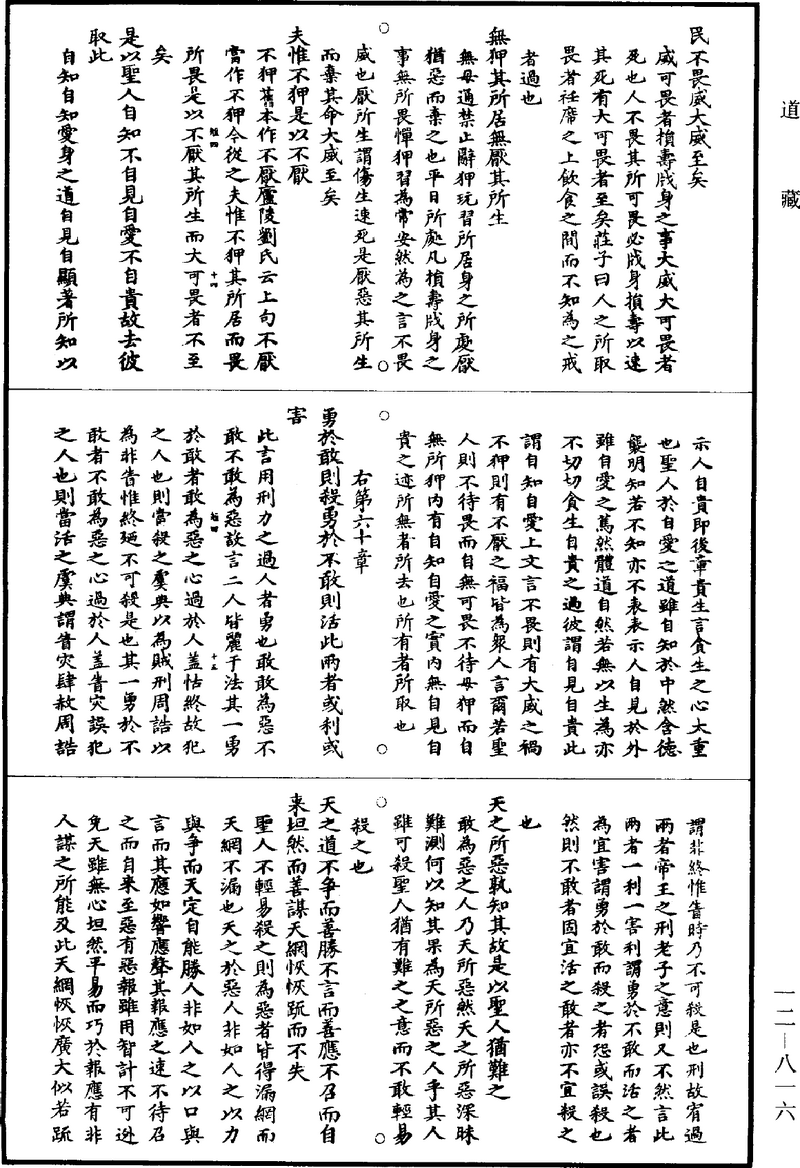 道藏
民不畏威大威至矣
威可畏者損壽戕身之事大威大可畏者
死也人不畏其所可畏必戕身損壽以速
其死有大可畏者至矣莊子曰人之所取
畏者衽席之上飲食之間而不知為之戒
者過也
無狎其所居無厭其所生
無毋通禁止辭狎玩習所居身之所處厭
猶惡而棄之也平日所處凡損壽戕身之
事無所畏憚狎習為常安然為之言不畏
威也厭所生謂傷生速死是厭惡其所生
而棄其命大威至矣
夫惟不狎是以不厭
不狎舊本作不厭廬陵劉氏云上句不厭
當作不狎今從之夫惟不狎其所居而畏
所畏是以不厭其所生而大可畏者不至
矣
是以聖人自知不自見自愛不自貴故去彼
取此
自知自知愛身之道自見自顯著所知以
示人自貴即後章貴生言貪生之心太重
也聖人於自愛之道雖自知於中然含德
襲明知若不知亦不表表示人自見於外
雖自愛之篤然體道自然若無以生為亦
不切切貪生自貴之過彼謂自見自貴此
謂自知自愛上文言不畏則有大威之禍
不狎則有不厭之福皆為衆人言爾若聖
人則不待畏而自無可畏不待毋狎而自
無所狎内有自知自愛之實内無自見自
貴之迹所無者所去也所有者所取也
右第六十章
勇於敢則殺勇於不敢則活此兩者或利或
害
此言用刑力之過人者勇也敢敢為惡不
敢不敢為惡故言二人皆麗于法其一勇
於敢者敢為惡之心過於人蓋怙終故犯
之人也則當殺之虞典以為賊刑周誥以
為非眚惟終廼不可殺是也其一勇於不
敢者不敢為惡之心過於人蓋眚災誤犯
之人也則當活之虞典謂眚災肆赦周誥
謂非終惟眚時乃不可殺是也刑故宥過
兩者帝王之刑老子之意則又不然言此
兩者一利一害利謂勇於不敢而活之者
為宜害謂勇於敢而殺之者恐或誤殺也
然則不敢者固宜活之敢者亦不宜殺之
也
天之所惡孰知其故是以聖人猶難之
敢為惡之人乃天所惡然天之所惡深昧
難測何以知其果為天所惡之人乎其人
雖可殺聖人猶有難之之意而不敢輕易
殺之也
天之道不爭而善勝不言而善應不召而自
来坦然而善謀天網恢恢䟽而不失
聖人不輕易殺之則為惡者皆得漏網而
天網不漏也天之於惡人非如人之以力
與爭而天定自能勝人非如人之以口與
言而其應如響應聲其報應之速不待召
之而自来至惡有惡報雖用智計不可迯
免天雖無心坦然平易而巧於報應有非
人謀之所能及此天網恢恢廣大似若䟽
一二—八一六